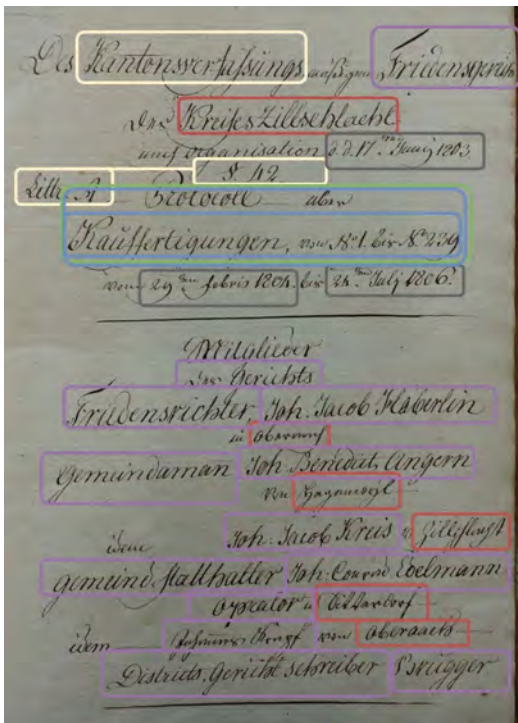 Des Kantonsverfassüngs mäßigen Friedensgerichts
des Kreises Zillschlacht
nach Organisation d.d. 17.ten Junij 1803.
§. 42
Littr. A Protocoll über
Kauffertigungen, von N.º 1. bis N.º 239
vom 29.ten Febris 1804. bis 24.ten Julj 1806.
Mitglieder
des Gerichts
Friedensrichter, Joh. Jacob Häberlin
in
Gemeindaman Joh Benedict Angern
von
idem Joh: Jacob Kreis v
gemeind Statthalter Joh: Conrad Edelmann
Operator in
idem von Oberaach
Districts. Gericht schreiber Brügger